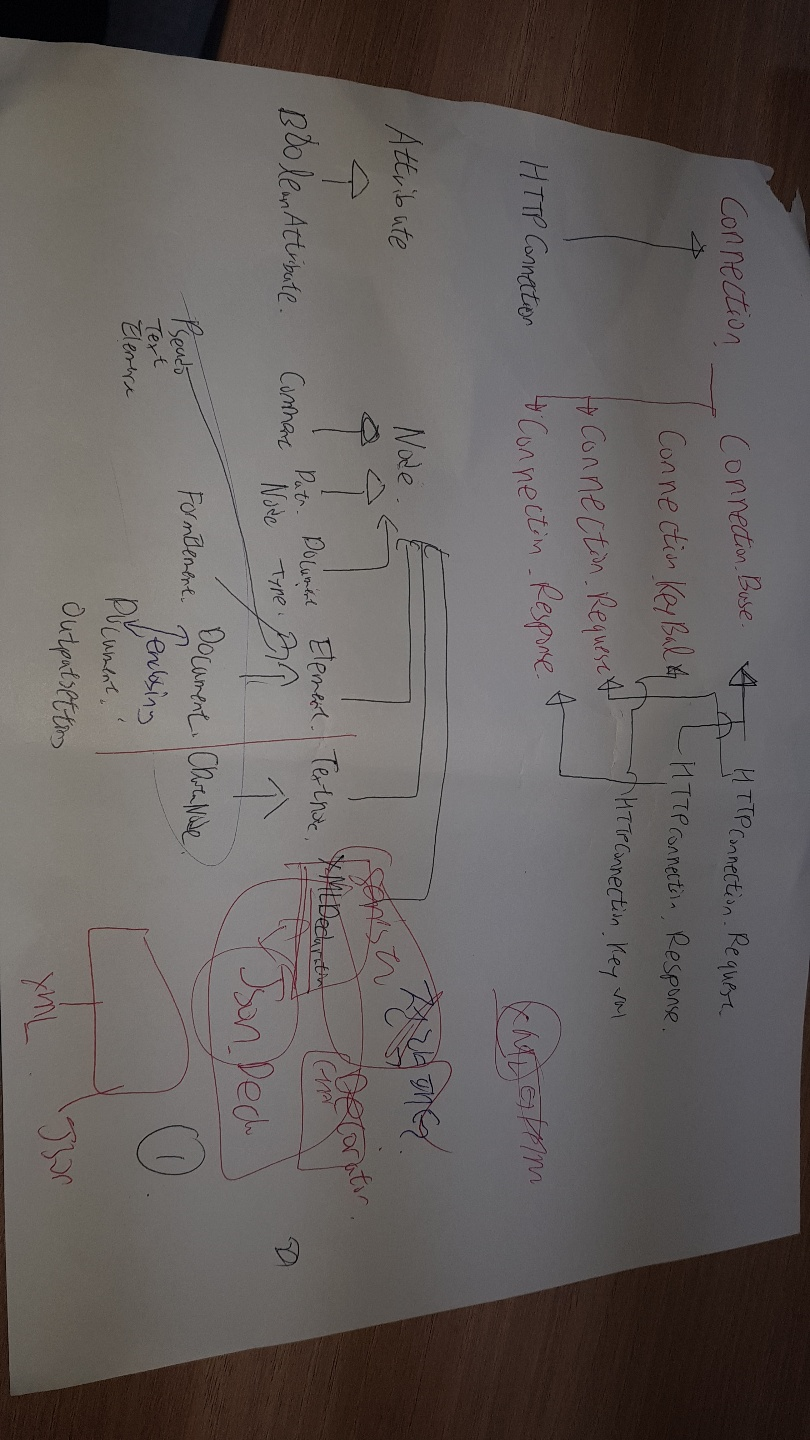 Connection.
Connection.Base.
Connection.KeyVal
Connection.Request
Connection.Response.
HTTP Connection
HTTPConnection.Request
HTTPConnection.Response.
HTTPConnection.KeyVal
Attribute
BooleanAttribute.
Node.
Data
Node
Document
Type.
Element.
Textnode.
XMLDeclaration
Pseudo
Text
Element
FormElement.
Document.
CDataNode.
enclosing
Document.
Outputsetting
Json_Decl
Decorator.
XML
Json
1